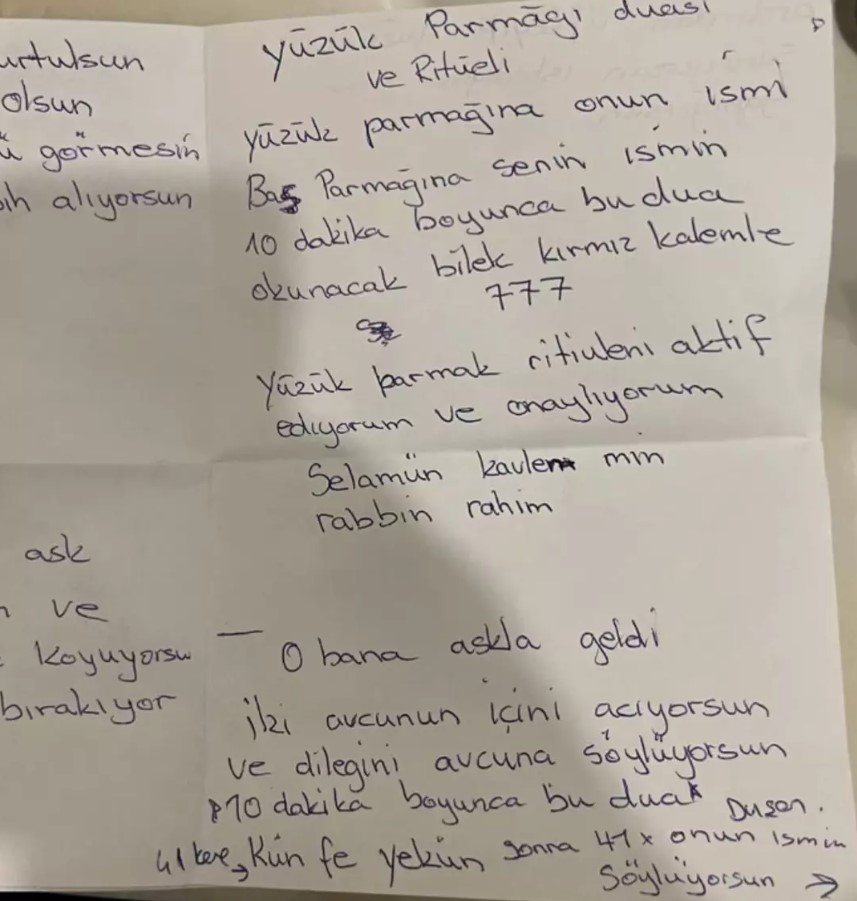 urtulsun
olsun
ü görmesin
ih alıyorsun
ask
ve
koyuyorsu
bırakıyor
yüzük Parmağı duası
ve Ritüeli
yüzük parmağına onun ismi
Baş Parmağına senin ismin
10 dakika boyunca bu dua
okunacak bilek kırmız kalemle
777
yüzük parmak ritiuleni aktif
ediyorum ve onaylıyorum
Selamün kavlen min
rabbin rahim
— O bana askla geldi
iki avcunun içini acıyorsun
ve dilegini avcuna söylüyorsun
10 dakika boyunca bu dua
41 kere → Kün fe yekün sonra 41x onun ismin
Söylüyorsun →